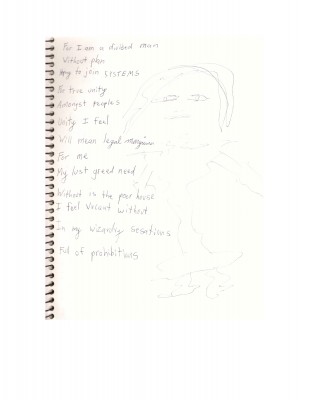 For I am a divided man
Without plan
to join SYSTEMS
For true unity
Amongst Peoples
Unity I feel
Will mean legal marijuana
For me
My lust greed need
Without is the poor house
I feel Vacant without
In my wizardry Sesations
Ful of prohibitions